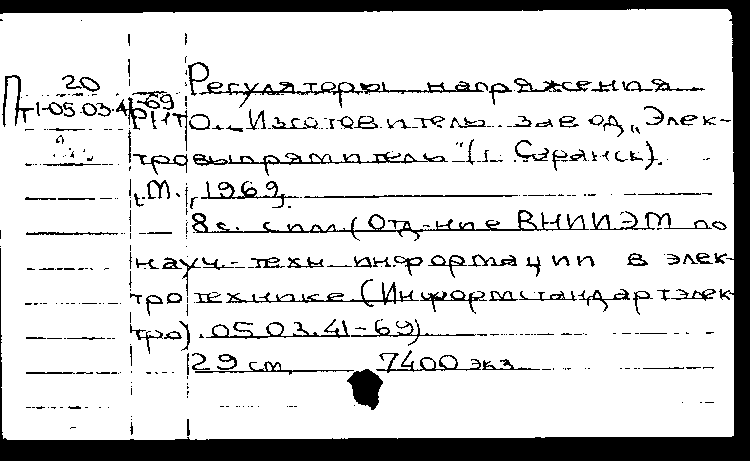 20
П Регуляторы напряжения
Т1-05.03.41-69
РНТО. Изготовитель завод „Элек-
тровыпрямитель" (г. Саранск).
М., 1969,
8 с. с илл. (Отд-ние ВНИИЭМ по
науч.-техн информации в элек-
тротехнике (Информстандартэлек-
тро). 05.03.41-69)
29 см. 7400 экз.